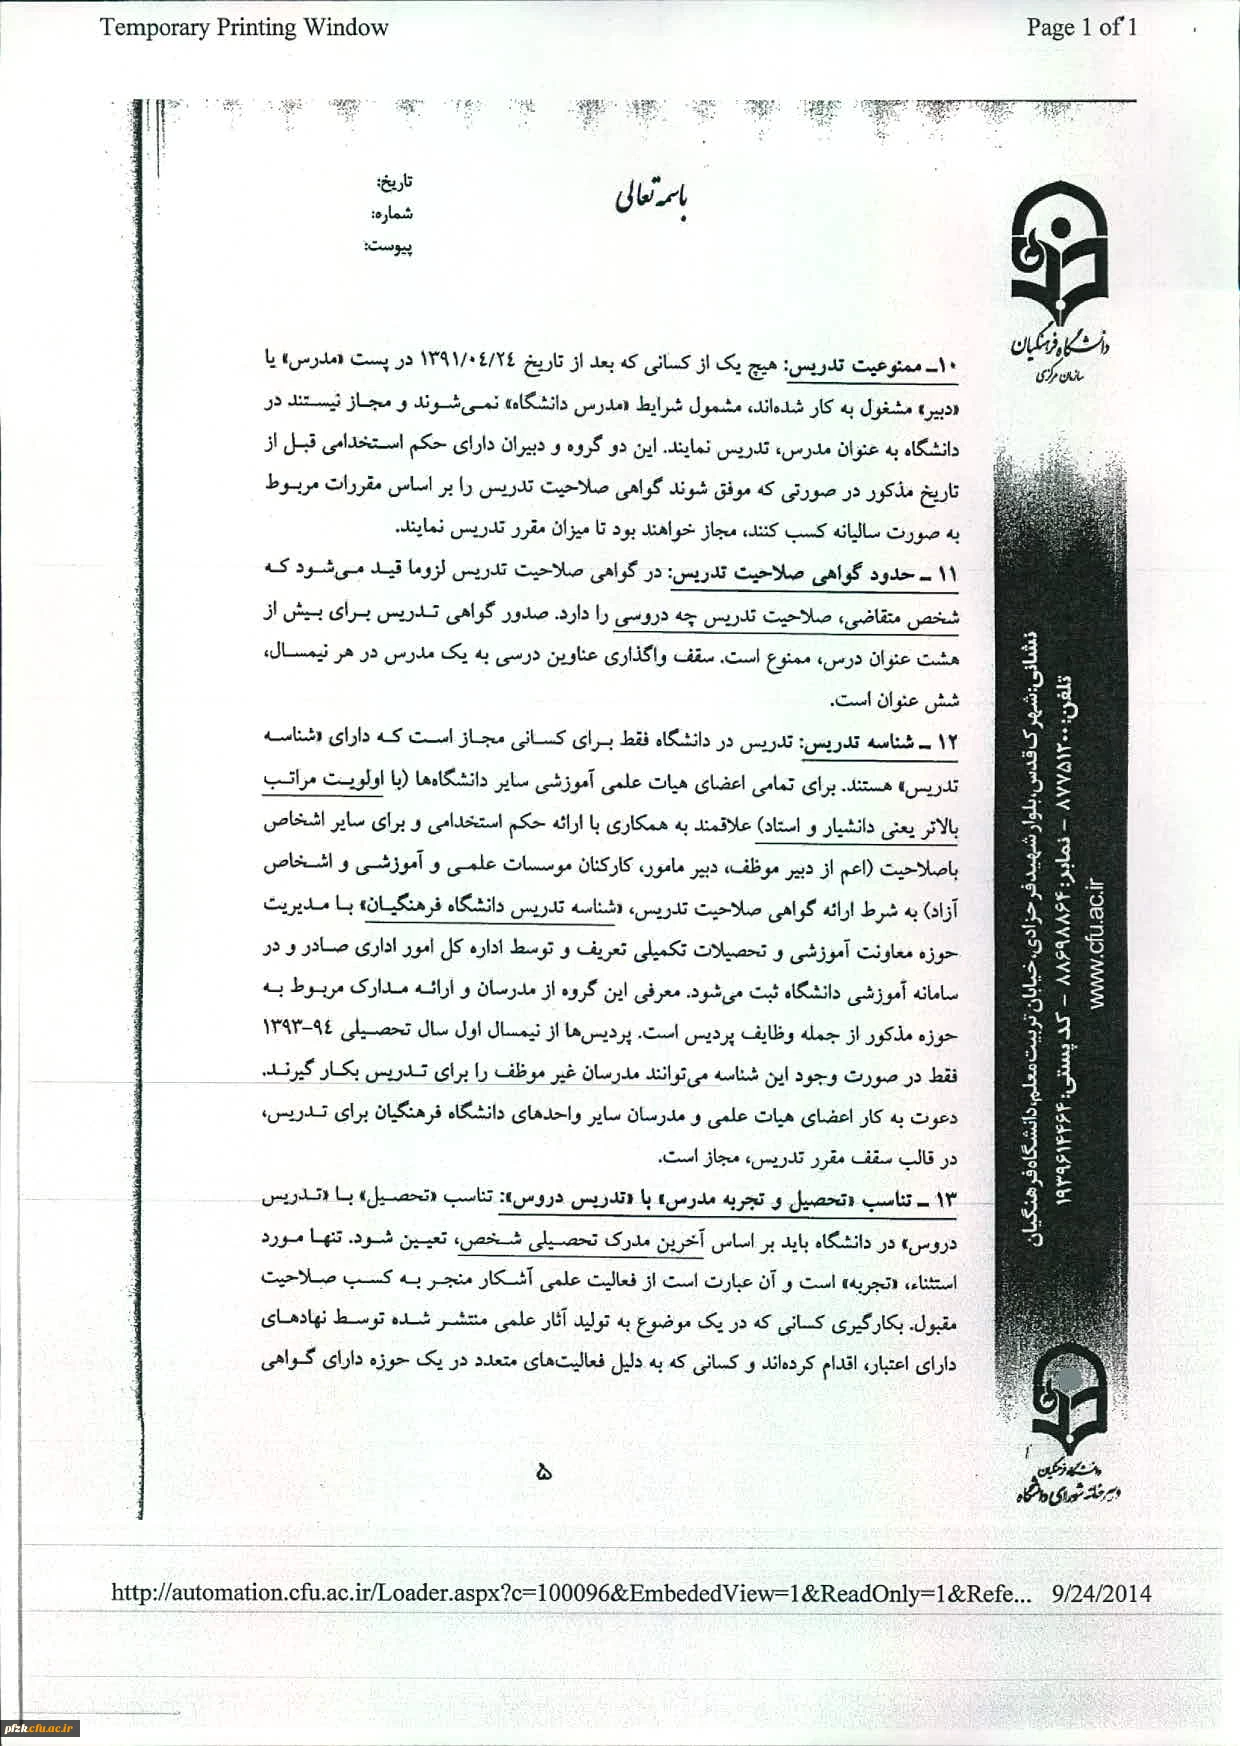 Temporary Printing Window
Page 1 of 1
باسمه تعالی
تاریخ:
شماره:
پیوست:
دانشگاه فرهنگیان
سازمان مرکزی
۱۰ـ ممنوعیت تدریس: هیچ یک از کسانی که بعد از تاریخ ۱۳۹۱/۰٤/۲٤ در پست «مدرس» یا
«دبیر» مشغول به کار شده‌اند، مشمول شرایط «مدرس دانشگاه» نمی‌شوند و مجاز نیستند در
دانشگاه به عنوان مدرس، تدریس نمایند. این دو گروه و دبیران دارای حکم استخدامی قبل از
تاریخ مذکور در صورتی که موفق شوند گواهی صلاحیت تدریس را بر اساس مقررات مربوط
به صورت سالیانه کسب کنند، مجاز خواهند بود تا میزان مقرر تدریس نمایند.
۱۱ ـ حدود گواهی صلاحیت تدریس: در گواهی صلاحیت تدریس لزوما قید می‌شود که
شخص متقاضی، صلاحیت تدریس چه دروسی را دارد. صدور گواهی تدریس برای بیش از
هشت عنوان درس، ممنوع است. سقف واگذاری عناوین درسی به یک مدرس در هر نیمسال،
شش عنوان است.
۱۲ ـ شناسه تدریس: تدریس در دانشگاه فقط برای کسانی مجاز است که دارای «شناسه
تدریس» هستند. برای تمامی اعضای هیات علمی آموزشی سایر دانشگاه‌ها (با اولویت مراتب
بالاتر یعنی دانشیار و استاد) علاقمند به همکاری با ارائه حکم استخدامی و برای سایر اشخاص
باصلاحیت (اعم از دبیر موظف، دبیر مامور، کارکنان موسسات علمی و آموزشی و اشخاص
آزاد) به شرط ارائه گواهی صلاحیت تدریس، «شناسه تدریس دانشگاه فرهنگیان» با مدیریت
حوزه معاونت آموزشی و تحصیلات تکمیلی تعریف و توسط اداره کل امور اداری صادر و در
سامانه آموزشی دانشگاه ثبت می‌شود. معرفی این گروه از مدرسان و ارائه مدارک مربوط به
حوزه مذکور از جمله وظایف پردیس است. پردیس‌ها از نیمسال اول سال تحصیلی ۹٤-۱۳۹۳
فقط در صورت وجود این شناسه می‌توانند مدرسان غیر موظف را برای تدریس بکار گیرند.
دعوت به کار اعضای هیات علمی و مدرسان سایر واحدهای دانشگاه فرهنگیان برای تدریس،
در قالب سقف مقرر تدریس، مجاز است.
۱۳ ـ تناسب «تحصیل و تجربه مدرس» با «تدریس دروس»: تناسب «تحصیل» با «تدریس
دروس» در دانشگاه باید بر اساس آخرین مدرک تحصیلی شخص، تعیین شود. تنها مورد
استثناء، «تجربه» است و آن عبارت است از فعالیت علمی آشکار منجر به کسب صلاحیت
مقبول. بکارگیری کسانی که در یک موضوع به تولید آثار علمی منتشر شده توسط نهادهای
دارای اعتبار، اقدام کرده‌اند و کسانی که به دلیل فعالیت‌های متعدد در یک حوزه دارای گواهی
نشانی:شهرک قدس،بلوار شهید فرحزادی،خیابان تربیت معلم،دانشگاه فرهنگیان
تلفن:۸۷۷۵۱۲۰۰ - نمابر:۸۸۶۹۸۸۶۴ - کد پستی:۱۹۳۹۶۱۴۴۶۴
www.cfu.ac.ir
۵
دانشگاه فرهنگیان
دبیرخانه شورای دانشگاه
http://automation.cfu.ac.ir/Loader.aspx?c=100096&EmbededView=1&ReadOnly=1&Refe...
9/24/2014
pfzk.cfu.ac.ir